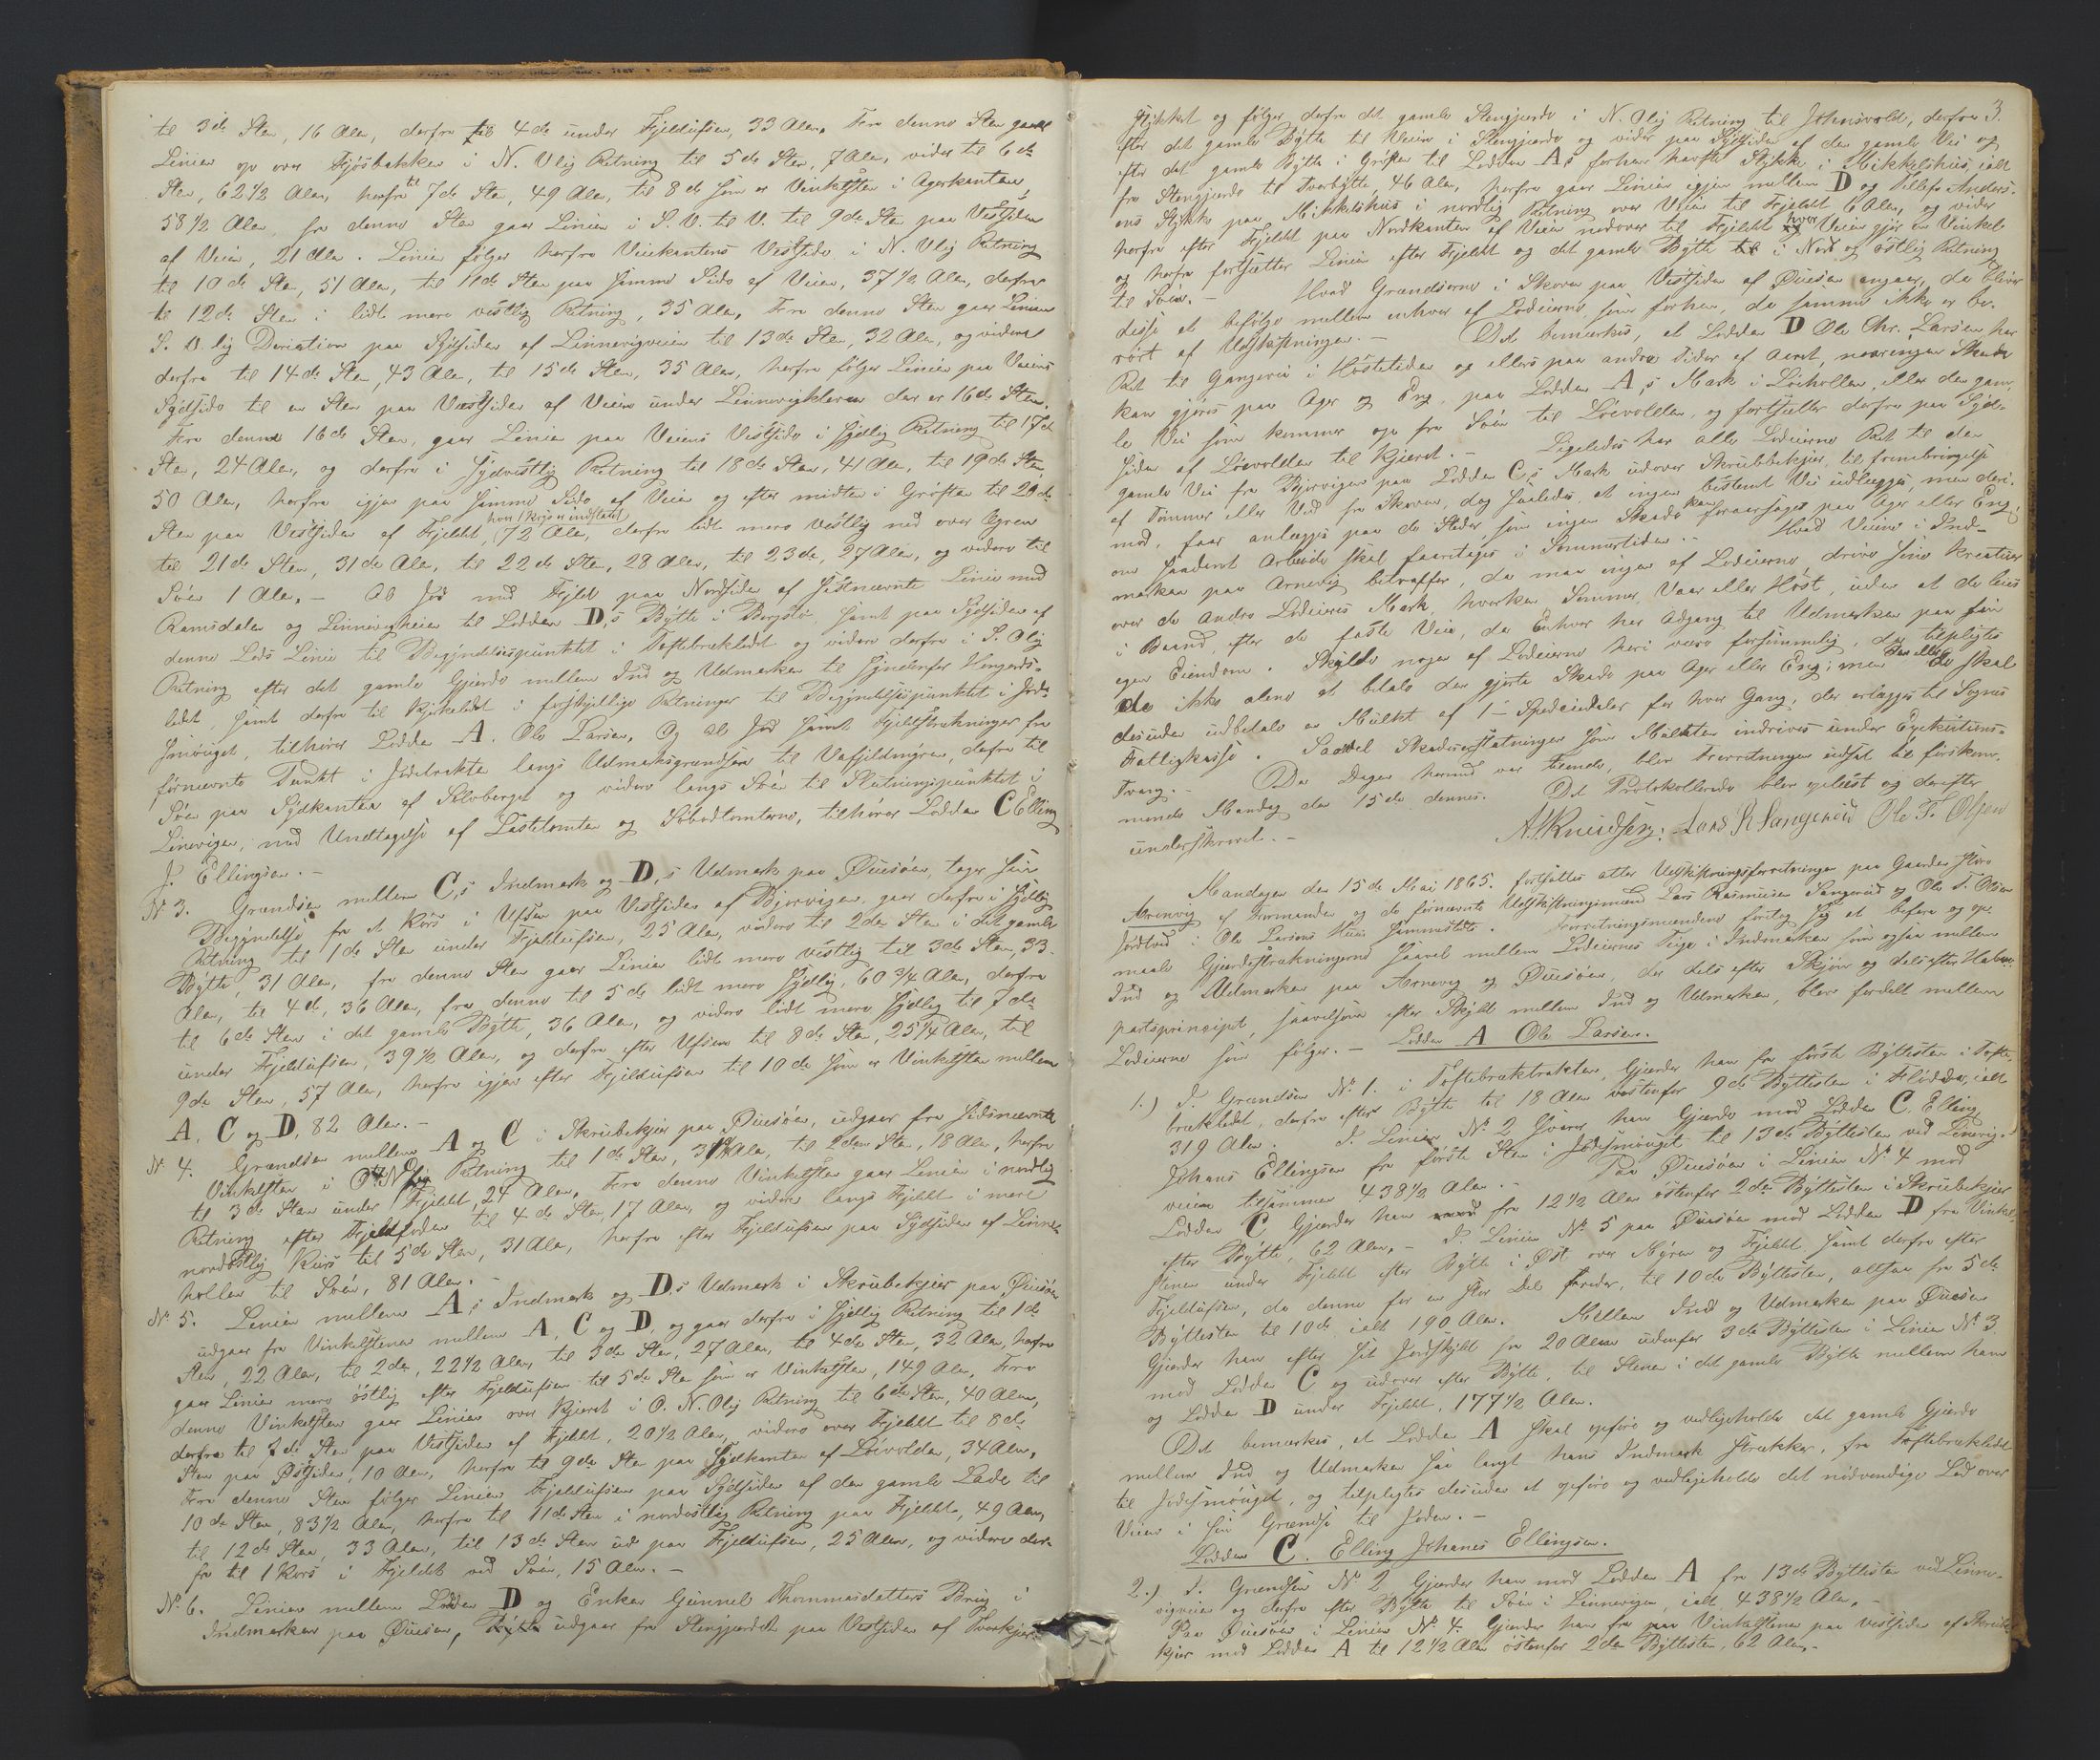 til 3de Sten, 16 Alen, derfra til 4de under Fjeldufsen, 33 Alen. Fra denne Sten gaar
Linien op over Fjøsbakken i N. Vlig Retning til 5de Sten, 7 Alen, vider til 6de
Sten, 62 1/2 Alen, herfra til 7de Sten, 49 Alen, til 8de som er Vinkelsten i Agerkanten,
58 1/2 Alen, fra denne Sten gaar Linien i S. V. til V. til 9de Sten paa Vestsiden
af Veien, 21 Alen. Linien følger herfra Veikantens Vestside i N. Vlig Retning
til 10de Sten, 51 Alen, til 11de Sten paa samme Side af Veien, 37 1/2 Alen, derfra
til 12de Sten i lidt mere vestlig Retning, 35 Alen, Fra denne Sten gaar Linien
S. V. lig Deviation paa Sydsiden af Linnevigveien til 13de Sten, 32 Alen, og videre
derfra til 14de Sten, 43 Alen, til 15de Sten, 35 Alen, herfra følger Linien paa Veiens
Sydside til en Sten paa Vestsiden af Veien under Linnevigkleven der er 16de Sten.
Fra denne 16de Sten, gaar Linien paa Veiens Vestside i sydlig Retning til 17de
Sten, 24 Alen, og derfra i sydvestlig Retning til 18de Sten, 41 Alen, til 19de Sten,
50 Alen, herfra igjen paa samme Side af Veien og efter midten i Grøften til 20de
Sten paa Vestsiden af Fjeldet, hvor 1 Krys er indslaaet 72 Alen, derfra lidt mere vestlig ned over Ageren
til 21de Sten, 31 de Alen, til 22de Sten, 28 Alen, til 23de, 27 Alen, og videre til
Søen 1 Alen. – Al Jord med Fjeld paa Nordsiden af sistnævnte Linie med
Ramsdalen og Linnevigheien til Lodden D,s Bytte i Bergslø, samt paa Sydsiden af
denne Lods Linie til Begyndelsespunktet i Toftebrækledet og videre derfra i S. Olig
Retning efter det gamle Gjærde mellem Ind og Udmarken til søndenfor Hengerds-
ledet, samt derfra til Kjirkeledet i forskjellige Retninger til Begyndelsespunktet i Jøde-
smøuget, tilhører Lodden A. Ole Larsen, Og al Jord samt Fjeldstrækninger fra
førnævnte Punkt i Jødetrakten langs Udmarksgrændsen til Vasfjeldmyren, derfra til
Søen paa Sydkanten af Selvberget og videre langs Søen til Slutningspunktet i
Linevigen, med Undtagelse af Lastetomten og Søbodtomterne, tilhører Lodden C Elling
J. Ellingsen. –
No 3. Grændsen mellem C,s Indmark og D,s Udmark paa Øuesøen, tager sin
Begyndelse fra et Kors i Ufsen paa Vestsiden af Bjorvigen, gaar derfra i sydlig
Retning til 1de Sten under Fjeldufsen, 25 Alen, videre til 2den Sten i det gamle
Bytte, 31 Alen, fra denne Sten gaar Linien lidt mere vestlig til 3de Sten, 33
Alen, til 4de, 36 Alen, fra denne til 5de lidt mere sydlig, 60 3/4 Alen, derfra
til 6de Sten i det gamle Bytte, 36 Alen, og videre lidt mere sydlig til 7de
under Fjeldufsen, 39 1/2 Alen, og derfra efter Ufsen til 8de Sten, 25 1/4 Alen, til
9de Sten, 57 Alen, herfra igjen efter Fjeldufsen til 10de som er Vinkelsten mellem
A, C og D, 82 Alen. –
No 4. Grændsen mellem A og C i Skrubekjær paa Øuesøen, udgaar fra sidstnævnte
Vinkelsten i Retning til 1de Sten, Alen, til 2den Sten, 18 Alen, herfra
til 3de Sten under Fjeldet, 24 Alen, Fra denne Vinkelsten gaar Linien i nordlig
Retning efter Fjeldfoden til 4de Sten, 17 Alen, og videre langs Fjeldet i mere
nordøstlig Kurs til 5de Sten, 31 Alen, herfra efter Fjeldufsen paa Sydsiden af Linne-
hollen til Søen, 81 Alen. –
No 5. Linien mellem A,s Indmark og D,s Udmark i Skrubekjær paa Øuesøen
udgaar fra Vinkelstenen mellem A, C og D, og gaar derfra i sydlig Retning til 1de
Sten, 22 Alen, til 2de, 22 1/2 Alen, til 3de Sten, 27 Alen, til 4de Sten, 32 Alen, herfra
gaar Linien mere østlig efter Fjeldufsen til 5de Sten som er Vinkelsten, 149 Alen, Fra
denne Vinkelsten gaar Linien over Kjæret i O. N. Olig Retning til 6te Sten, 40 Alen,
derfra til 7de Sten paa Vestsiden af Fjeldet, 20 1/2 Alen, videre over Fjeldet til 8de
Sten paa Østsiden, 10 Alen, herfra til 9de Sten paa Sydkanten af Løevolden, 34 Alen,
Fra denne Sten følger Linien Fjeldufsen paa Sydsiden af den gamle Lade til
10de Sten, 83 1/2 Alen, herfra til 11de Sten i nordøstlig Retning paa Fjeldet, 49 Alen,
til 12de Sten, 33 Alen, til 13de Sten ud paa Fjeldufsen, 25 Alen, og videre der-
fra til 1 Kors i Fjeldet ved Søen, 15 Alen. –
No 6. Linien mellem Lodden D og Enken Gunnel Thommasdatters Brug i
Indmarken paa Øuesøen, udgaar fra Stengjærdet paa Vestsiden af Tverkjær-
3
stykket og følger derfra det gamle Stengjærde i N. Olig Retning til Johnsvold, derfra S.
efter det gamle Bytte til Veien i Stengjærde og vider paa Sydsiden af den gamle Vei og
efter det gamle Bytte i Grøften til Lodden A,s forhen havte Stykke i Mikkelshus, ialt
fra Stengjærde til Tverbytte, 46 Alen, herfra gaar Linien igjen mellem D og Tellef Anders-
ens Stykke paa Mikkelshus i nordlig Retning over Veien til Fjeldet 6 Alen, og vider
herfra efter Fjeldet paa Nordkanten af Veien nedover til Fjeldet hvor Veien gjør en Vinkel
og herfra fortsætter Linien efter Fjeldet og det gamle Bytte i Nord og østlig Retning
til Søen. – Hvad Grændserne i Skoven paa Vestsiden af Øuesøen angaar, da bliver
disse at befølge mellem enhver af Lodeierne, som forhen, da samme ikke er be-
rørt af Udskiftningen. – Det bemærkes, at Lodden D Ole Chr. Larsen har
Ret til Gangevei i Høstetiden og ellers paa andre Tider af Aaret, naar ingen Skade
kan gjøres paa Ager og Eng, paa Lodden A,s Mark i Løehollen, eller den gam-
le Vei som kommer op fra Søen til Løevolden, og fortsætter derfra paa Syd-
siden af Løevolden til Kjæret. – Ligeledes har alle Lodeierne Ret til den
gamle Vei fra Bjorvigen paa Lodden C,s Mark udover Skrubbekjær, til frembringelse
af Tømmer eller Ved fra Skoven, dog saaledes, at ingen bestemt Vei udlægges, men deri-
mod, faar anlægges paa de Steder som ingen Skade kan foraarsages paa Ager eller Eng,
om saadant Arbeide skal foaretages i Sommertiden. – Hvad Veiene i Ind-
marken paa Arnevig betræffer, da maa ingen af Lodeierne, drive sine Kreaturer
over de andre Lodeieres Mark, hverken Sommer, Vaar eller Høst, uden at de leies
i Baand, efter de faste Veie, da Enhver har Adgang til Udmarken paa sin
egen Eiendom. Skylde nogen af Lodeierne heri være forsømmelig, da tilpligtes
de ikke alene at betale den gjorte Skade paa Ager eller Eng; men Han eller De skal
desuden udbetale en Mulkt af 1 – Speciedaler for hver Gang, der erlægges til Sognets
Fattigkasse. Saavel Skadeserstatningen som Mulkten indrives under Exekutions-
Tvang. – Da Dagen hermed var tilende, blev Forretningen udsat til førstkom-
mende Mandag den 15de dennes. Det Protokollerede blev oplæst og derefter
underskrevet. –
A. Knudsen. Lars R Sangereid Ole T. Olsen
Mandagen den 15de Mai 1865. fortsattes atter Udskiftningsforretningen paa Gaarden Store
Arnevig af Formanden og de førnævnte Udskiftningsmænd Lars Rasmusen Sangereid og Ole T. Olsen
Jordtved i Ole Larsens Huus sammesteds. Forretningsmændene foretog sig at befare og op-
maale Gjærdestrækningerne saavel mellem Lodeiernes Teige i Indmarken som ogsaa mellem
Ind og Udmarken paa Arnevig og Øuesøen, der dels efter Skjøn og dels efter Halve-
partsprincipet, saavelsom efter Skyld mellem Ind og Udmarken, blev fordelt mellem
Lodeierne som følger. – Lodden A Ole Larsen.
1.) I. Grændsen No 1. i Toftebræktrakten, Gjærder han fra første Byttesten i Tofte-
brækledet, derfra efter Bytte til 18 Alen vestenfor 9de Byttesten i Flødden, ialt
319 Alen. I. Linien No 2 Svarer han Gjærde mod Lodden C. Elling
Johans Ellingsen fra første Sten i Jødesmøuget til 13de Byttesten ved Linevig-
veien tilsammen 438 1/2 Alen. – Paa Øuesøen i Linien No 4 mod
Lodden C Gjærder han fra 12 1/2 Alen østenfor 2den Byttesten i Skrubekjær
efter Bytte, 62 Alen, – I. Linien No 5 paa Øuesøen mod Lodden D fra Vinkel-
stenen under Fjeldet efter Bytte i Øst over Myren og Fjeldet samt derfra efter
Fjeldufsen, da denne for en stor Del freder, til 10de Byttesten, altsaa fra 5de
Byttesten til 10de ialt 190 Alen. Mellem Ind og Udmarken paa Øuesøen
Gjærder han efter sit Jordskyld fra 20 Alen udenfor 3de Byttesten i Linien No 3
mod Lodden C og udover efter Bytte, til Stenen i det gamle Bytte mellem ham
og Lodden D under Fjeldet, 177 1/2 Alen.
Det bemærkes, at Lodden A skal opføre og vedligeholde det gamle Gjærde
mellem Ind og Udmarken saa langt hans Indmark strækker, fra Toftebrækledet
til Jødesmøuget, og tilpligtes desuden at opføre og vedligeholde det nødvendige Led over
Veien i sin Grændse til Jøden. –
Lodden C. Elling Johanes Ellingsen.
2.) I. Grændsen No 2 Gjærder han mod Lodden A fra 13de Byttesten ved Linne-
vigveien og derfra efter Bytte til Søen i Linnevigen, ialt 438 1/2 Alen. –
Paa Øuesøen i Linien No 4. Gjærder han fra Vinkelstenen paa vestsiden af Skrub-
kjær mod Lodden A til 12 1/2 Alen østenfor 2den Byttesten, 62 Alen. –